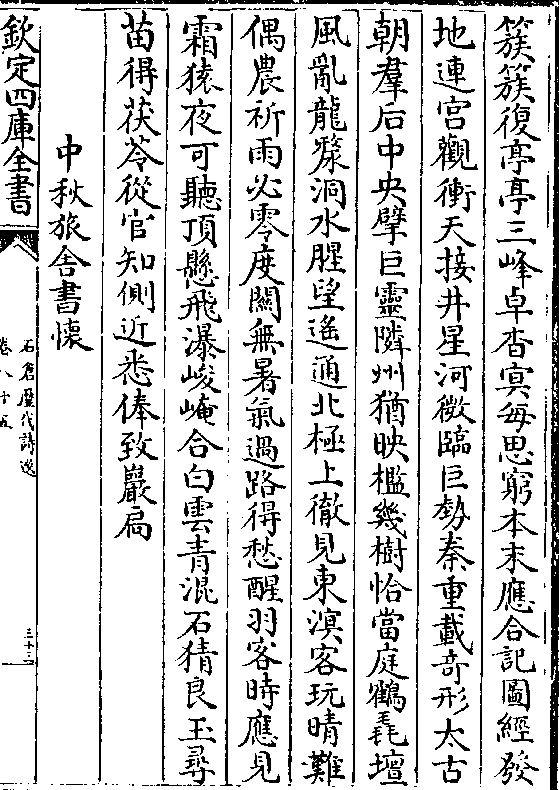 簇簇復亭亭三峰卓杳㝠每思窮本末應合記圖經發
地連宫觀衝天接井星河微臨巨勢秦重載竒形太古
朝羣后中央擘巨靈隣州猶映檻幾樹恰當庭鶴毳壇
風亂龍漦洞水腥望遥通北極上徹見東溟客玩晴難
偶農祈雨必零度關無暑氣過路得愁醒羽客時應見
霜猿夜可聽頂懸飛瀑峻崦合白雲青混石猜良玉尋
苗得茯苓從官知側近悉俸致巖扃
中秋旅舍書懷
欽定四庫全書
石倉歴代詩選
卷八十五
三十三